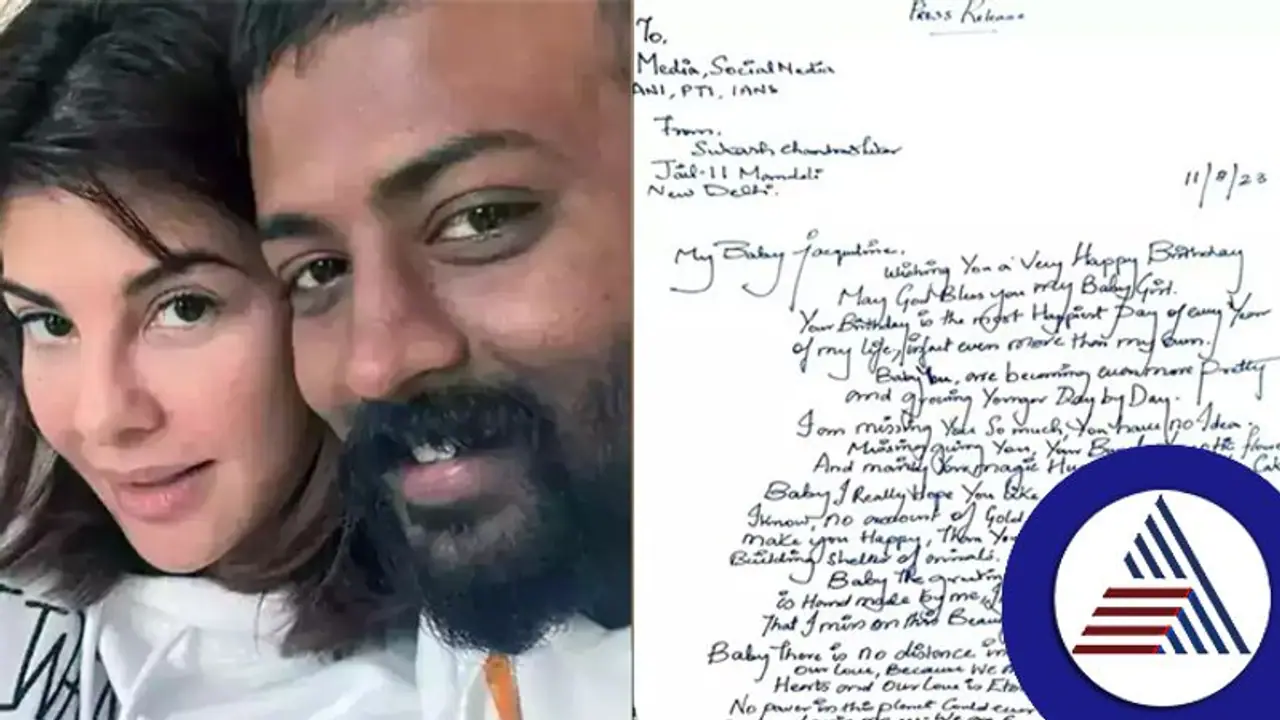 Press Release
To,
Media, Social Media
ANI, PTI, IANS
From,
Sukash Chandrashekar
Jail-11 Mandoli
New Delhi.
11/8/23
My Baby Jacqueline.
Wishing You a Very Happy Birthday
May God Bless you my Baby Girl.
Your Birthday is the most Happiest Day of every Year
of my life, infact even more than my own.
Baby You, are becoming even more Pretty
and growing Younger Day by Day.
I am missing You So much, You have no Idea.
Missing giving You, Your
And many Your magic
Baby I Really hope You like
I know, no amount of Gold
make you Happy, Than You
Building Shelter of animals.
Baby The greeting
is Hand made by me,
That I miss on this
Baby There is no distance in
Our Love, Because We
Hearts and Our Love is
No power in the planet Could ever